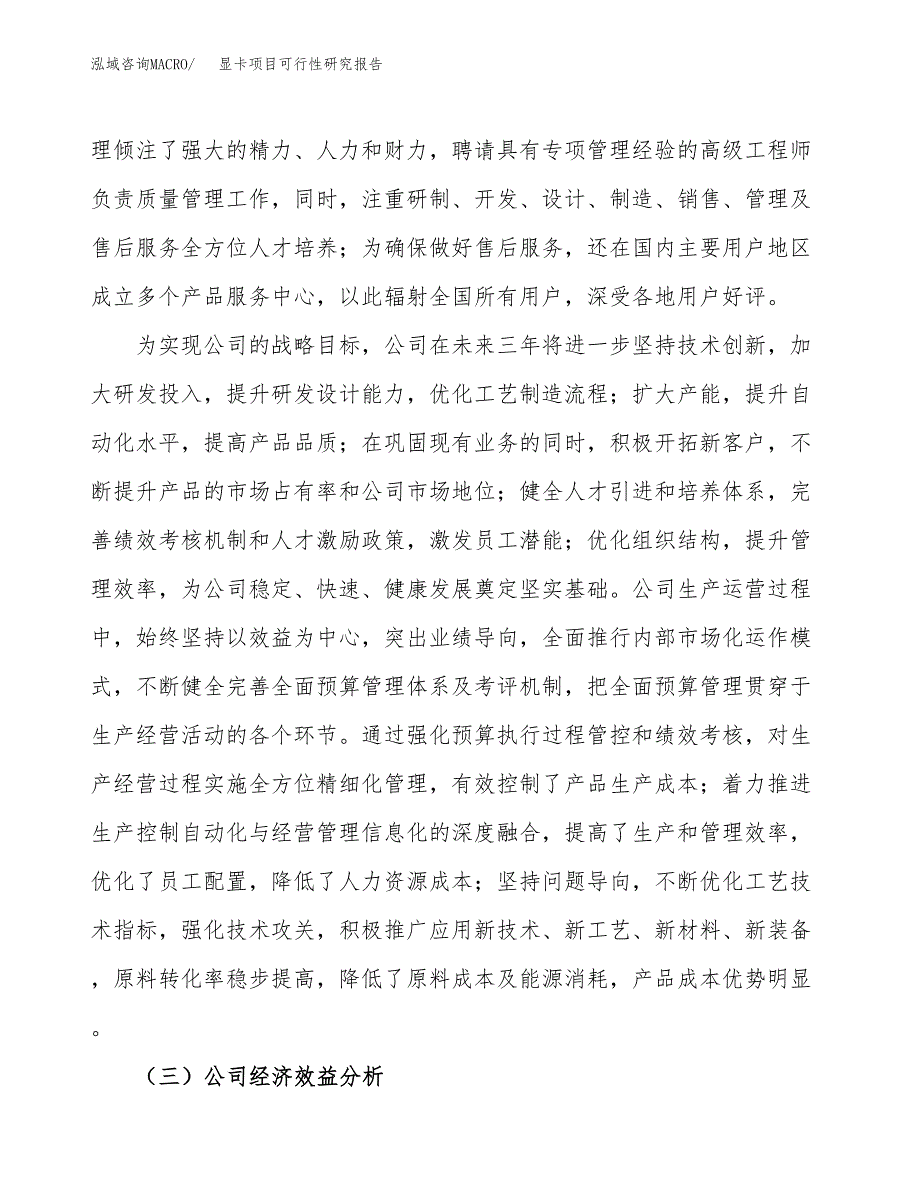 泓域咨询MACRO/ 显卡项目可行性研究报告
理倾注了强大的精力、人力和财力，聘请具有专项管理经验的高级工程师
负责质量管理工作，同时，注重研制、开发、设计、制造、销售、管理及
售后服务全方位人才培养；为确保做好售后服务，还在国内主要用户地区
成立多个产品服务中心，以此辐射全国所有用户，深受各地用户好评。
为实现公司的战略目标，公司在未来三年将进一步坚持技术创新，加
大研发投入，提升研发设计能力，优化工艺制造流程；扩大产能，提升自
动化水平，提高产品品质；在巩固现有业务的同时，积极开拓新客户，不
断提升产品的市场占有率和公司市场地位；健全人才引进和培养体系，完
善绩效考核机制和人才激励政策，激发员工潜能；优化组织结构，提升管
理效率，为公司稳定、快速、健康发展奠定坚实基础。公司生产运营过程
中，始终坚持以效益为中心，突出业绩导向，全面推行内部市场化运作模
式，不断健全完善全面预算管理体系及考评机制，把全面预算管理贯穿于
生产经营活动的各个环节。通过强化预算执行过程管控和绩效考核，对生
产经营过程实施全方位精细化管理，有效控制了产品生产成本；着力推进
生产控制自动化与经营管理信息化的深度融合，提高了生产和管理效率，
优化了员工配置，降低了人力资源成本；坚持问题导向，不断优化工艺技
术指标，强化技术攻关，积极推广应用新技术、新工艺、新材料、新装备
，原料转化率稳步提高，降低了原料成本及能源消耗，产品成本优势明显
。
（三）公司经济效益分析